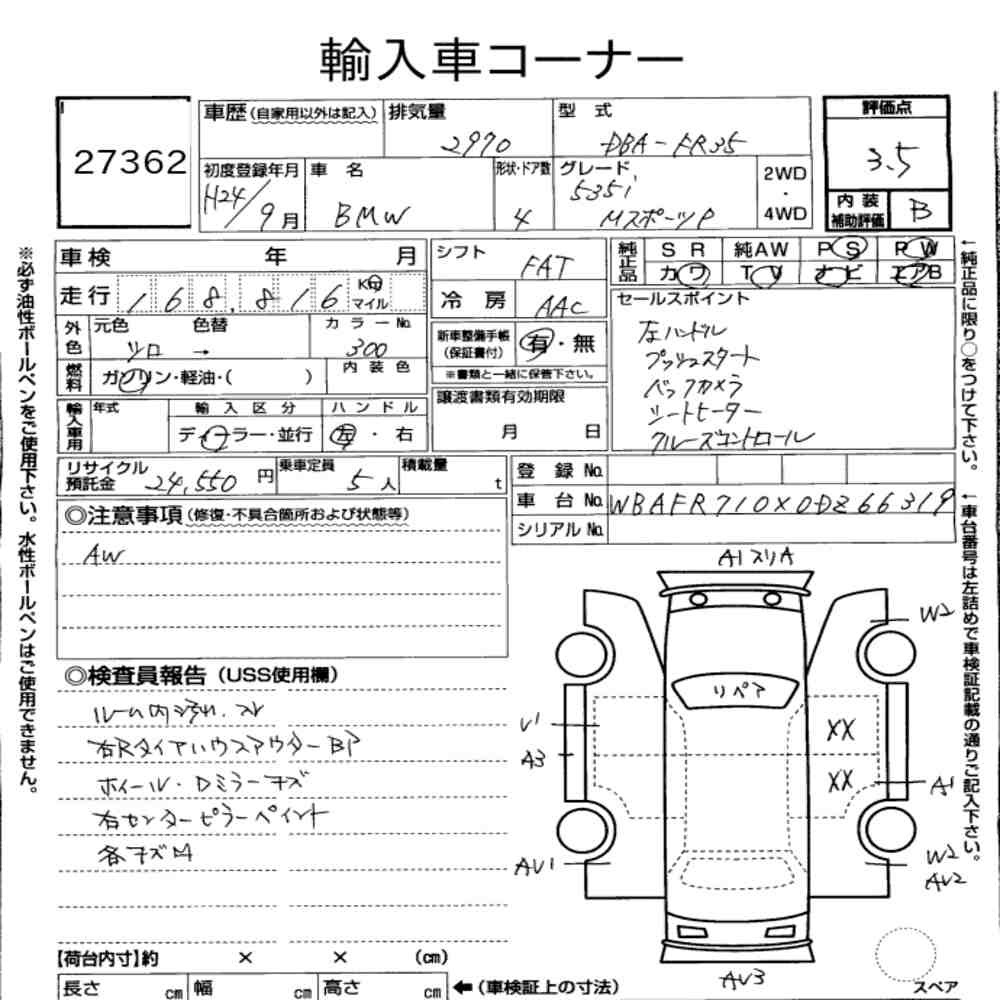 輸入車コーナー
27362
車歴(自家用以外は記入)
排気量
2970
型式
DBA-FR35
評価点
3.5
初度登録年月
H24/9月
車名
BMW
形状・ドア数
4
グレード
535i
MスポーツP
2WD
・
4WD
内装
補助評価
B
※必ず油性ボールペンをご使用下さい。水性ボールペンはご使用できません。
車検 年 月
シフト
FAT
純正品
SR 純AW PS PW
カワ TV ナビ エアB
走行 168,816 Km マイル
冷房 AAC
セールスポイント
左ハンドル
プッシュスタート
バックカメラ
シートヒーター
クルーズコントロール
外色
元色 色替
シロ →
カラーNo.
300
新車整備手帳
(保証書付)
有・無
※書類と一緒に保管下さい。
燃料
ガソリン・軽油・( )
内装色
譲渡書類有効期限
月 日
輸入車用
年式
輸入区分
ハンドル
ディーラー・並行
左・右
リサイクル
預託金 24,550円
乗車定員
5人
積載量
t
登録No.
車台No. WBAFR710X0DZ66319
シリアルNo.
←純正品に限り○をつけて下さい。
←車台番号は左詰めで車検証記載の通りご記入下さい。
◎注意事項(修復・不具合箇所および状態等)
AW
◎検査員報告(USS使用欄)
ルーム内汚れ.スレ
右Rタイヤハウスアウター BP
ホイール・Dミラーキズ
右センターピラーペイント
各キズ凹
A1スリA
W2
リペア
U1
A3
XX
XX
A1
AU1
W2
AU2
AU3
スペア
【荷台内寸】約 × × (cm)
長さ cm 幅 cm 高さ cm
←(車検証上の寸法)